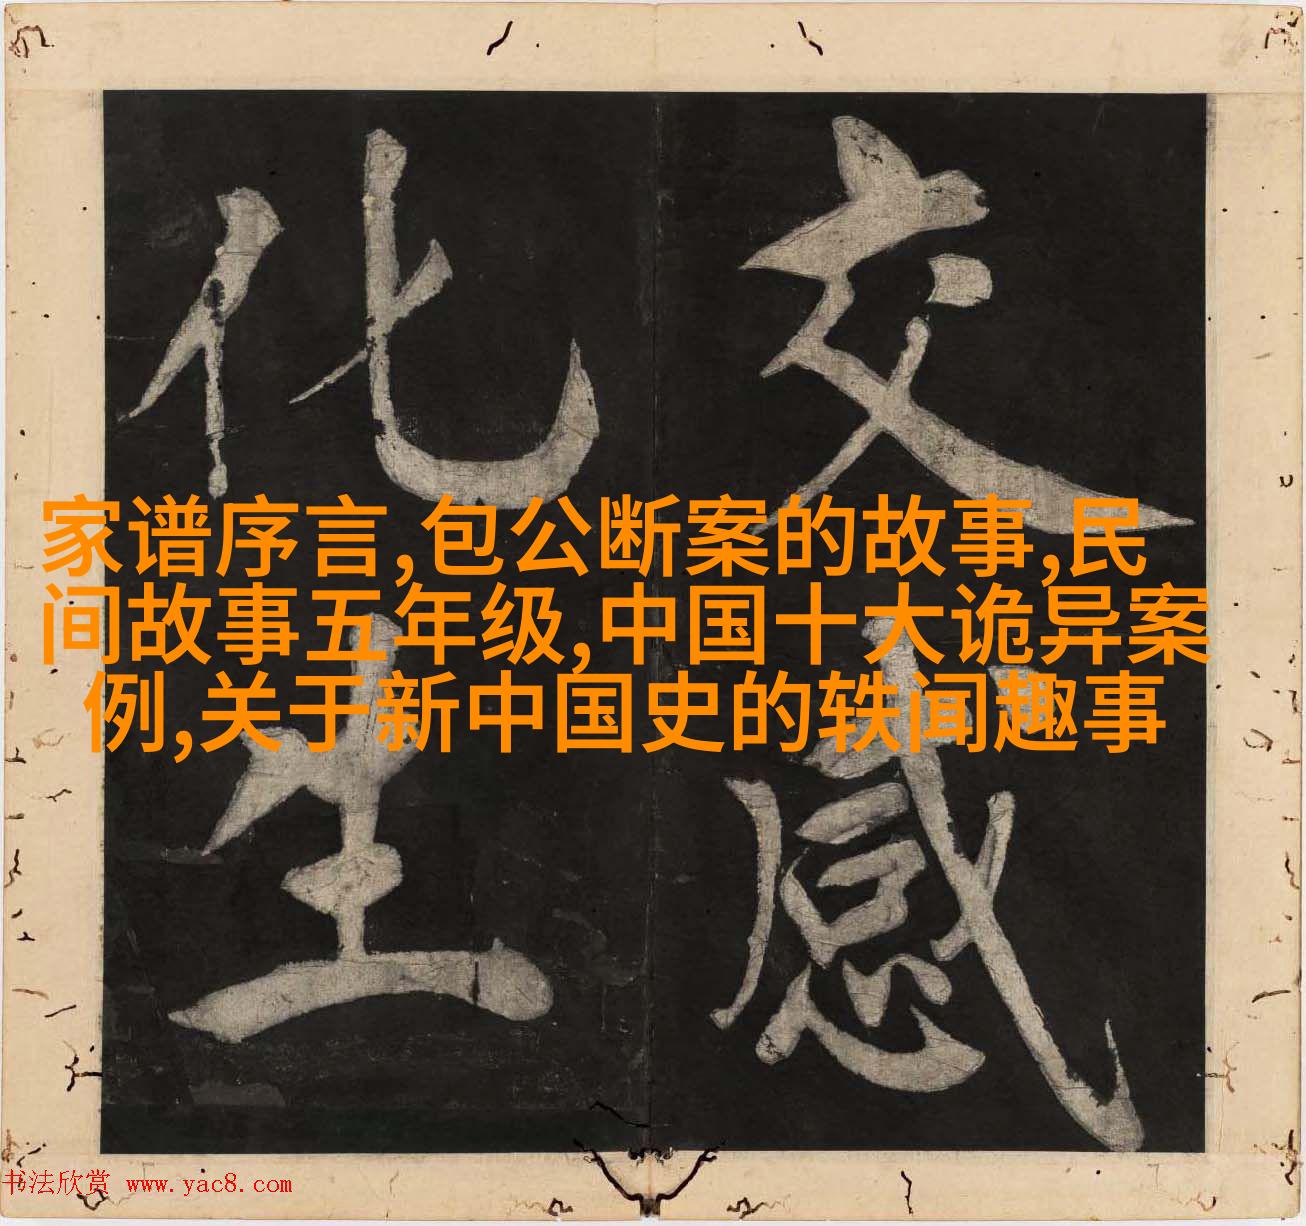 交感
化生
家谱序言,包公断案的故事,民
间故事五年级,中国十大诡异案
例,关于新中国史的轶闻趣事
书法欣赏 www.yac8.com